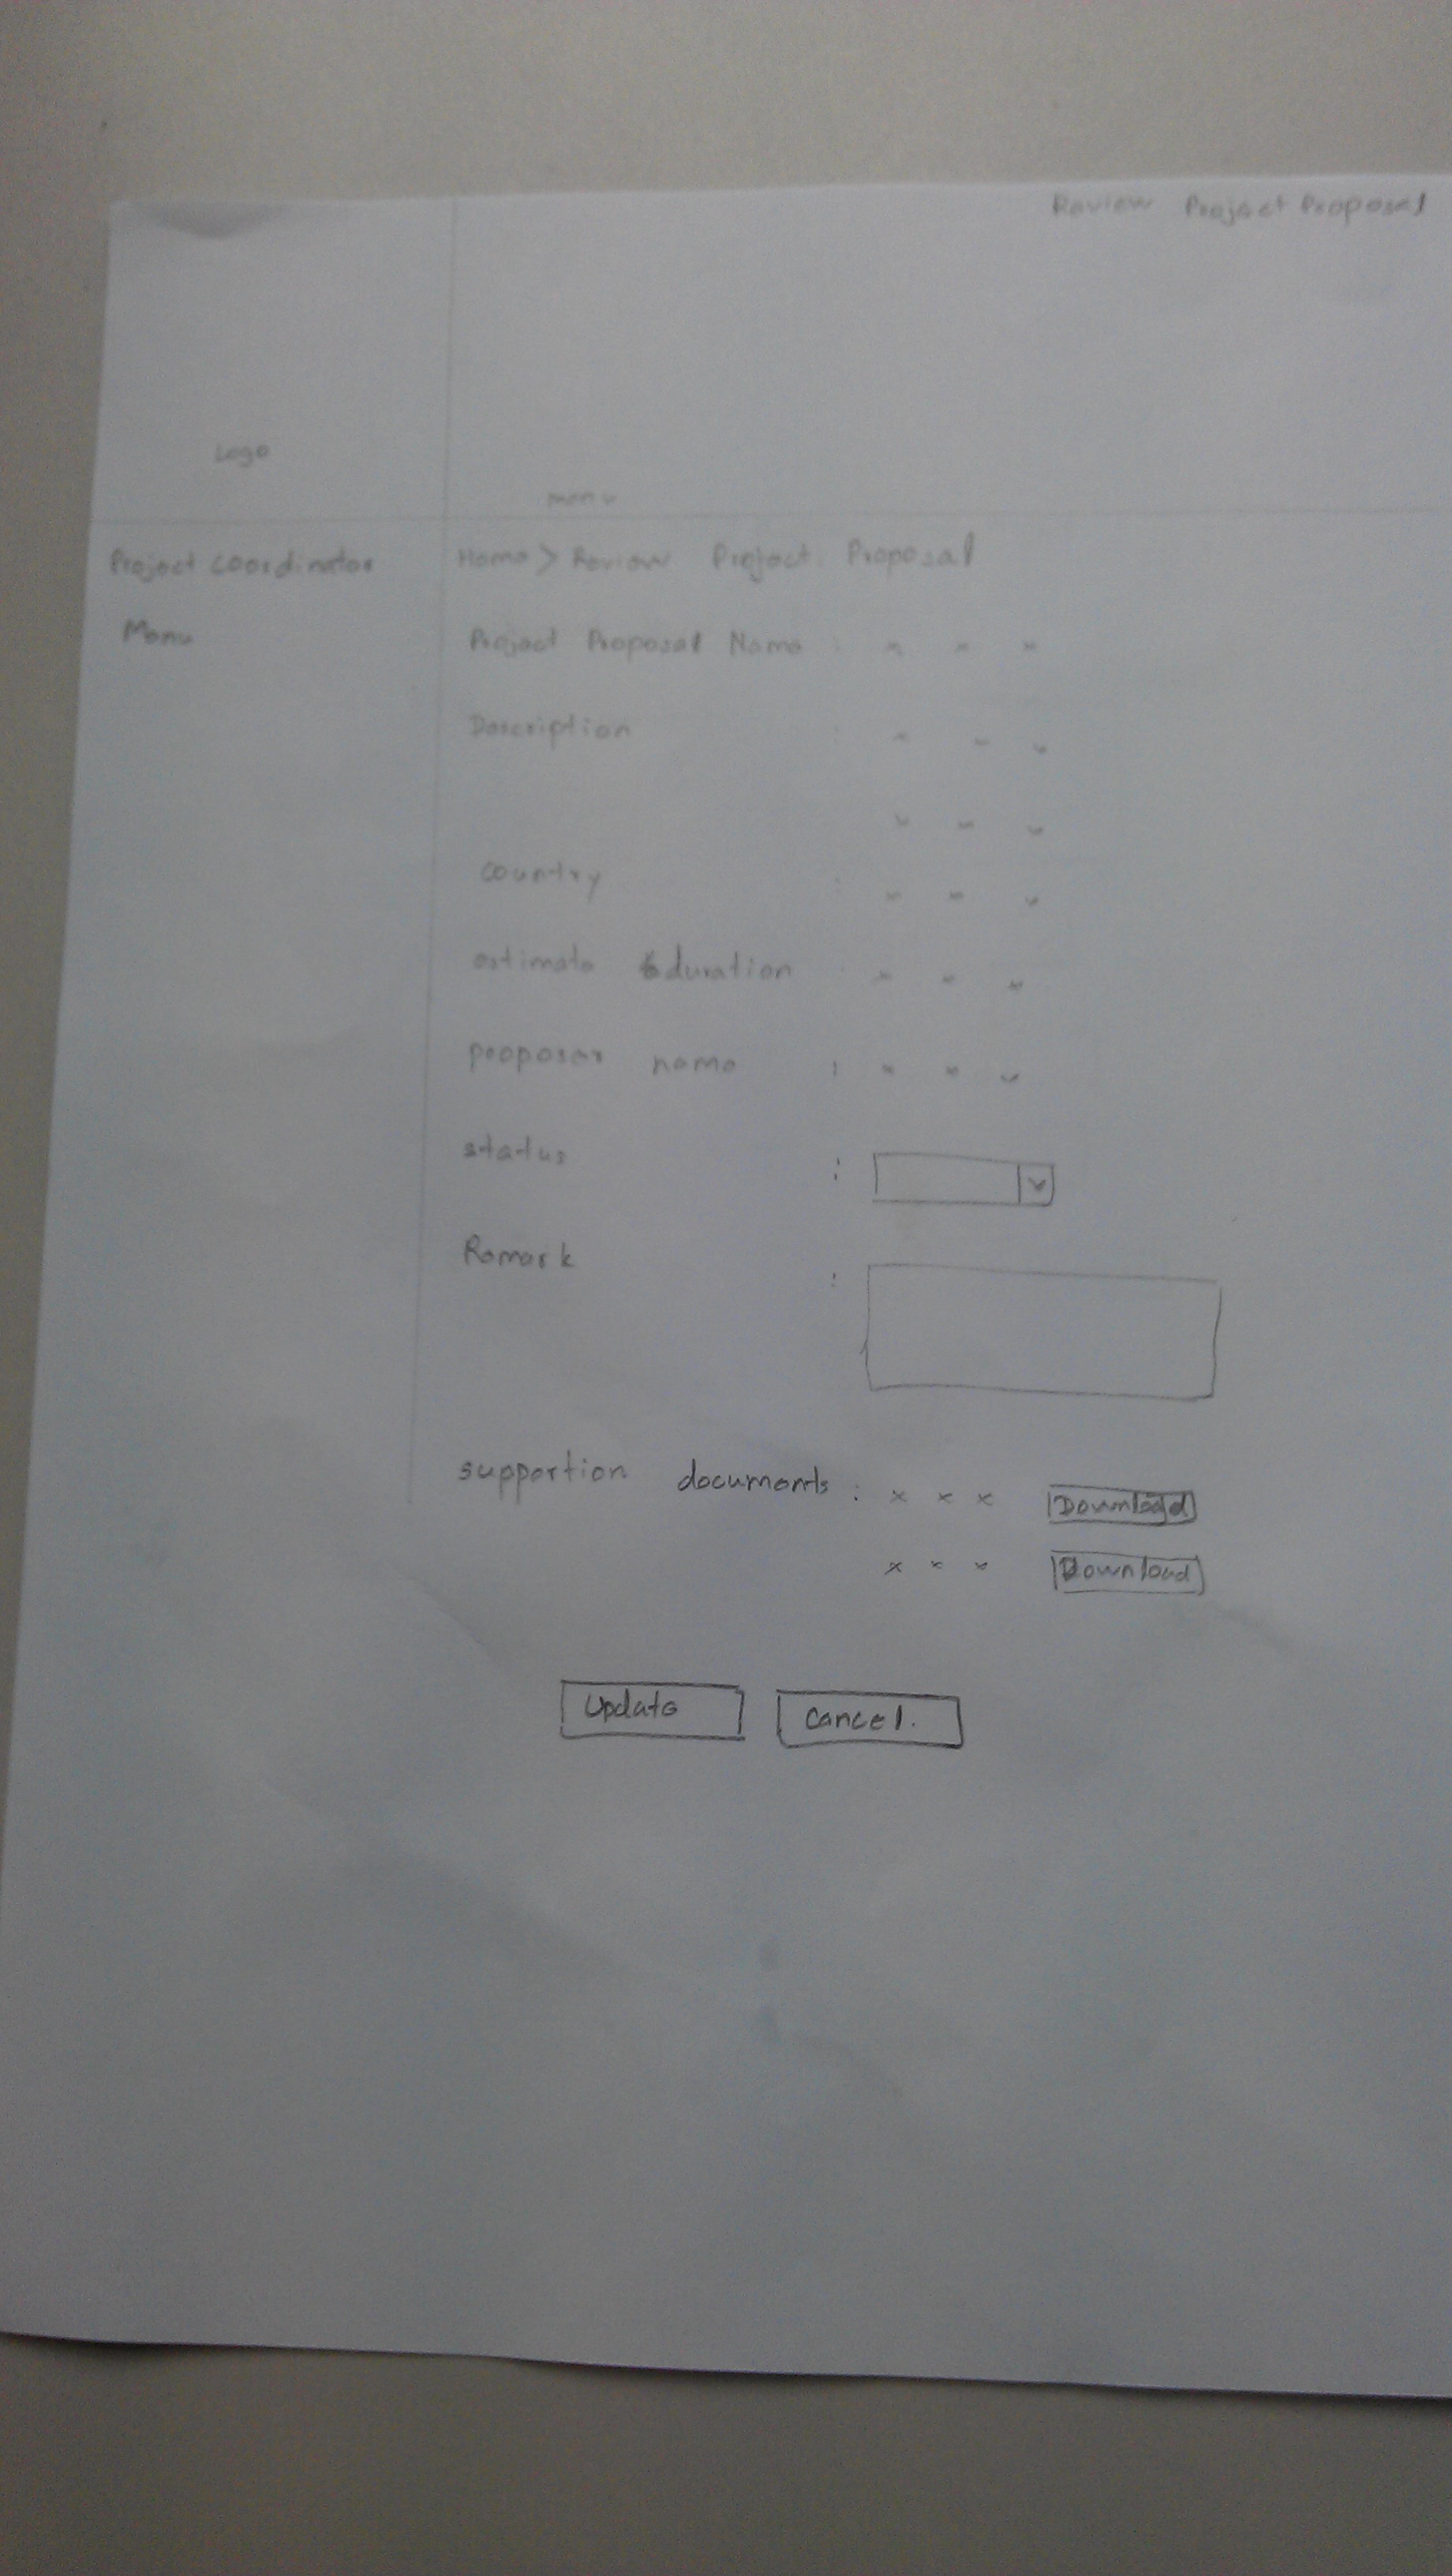 Review Project Proposal
Logo
menu
Project Coordinator
Home > Review Project Proposal
Menu
Project Proposal Name : x x x
Description : x x x
x x x
country : x x x
estimate duration : x x x
proposer name : x x x
status :
Remark :
supportion documents : x x x Download
x x x Download
Update
Cancel.